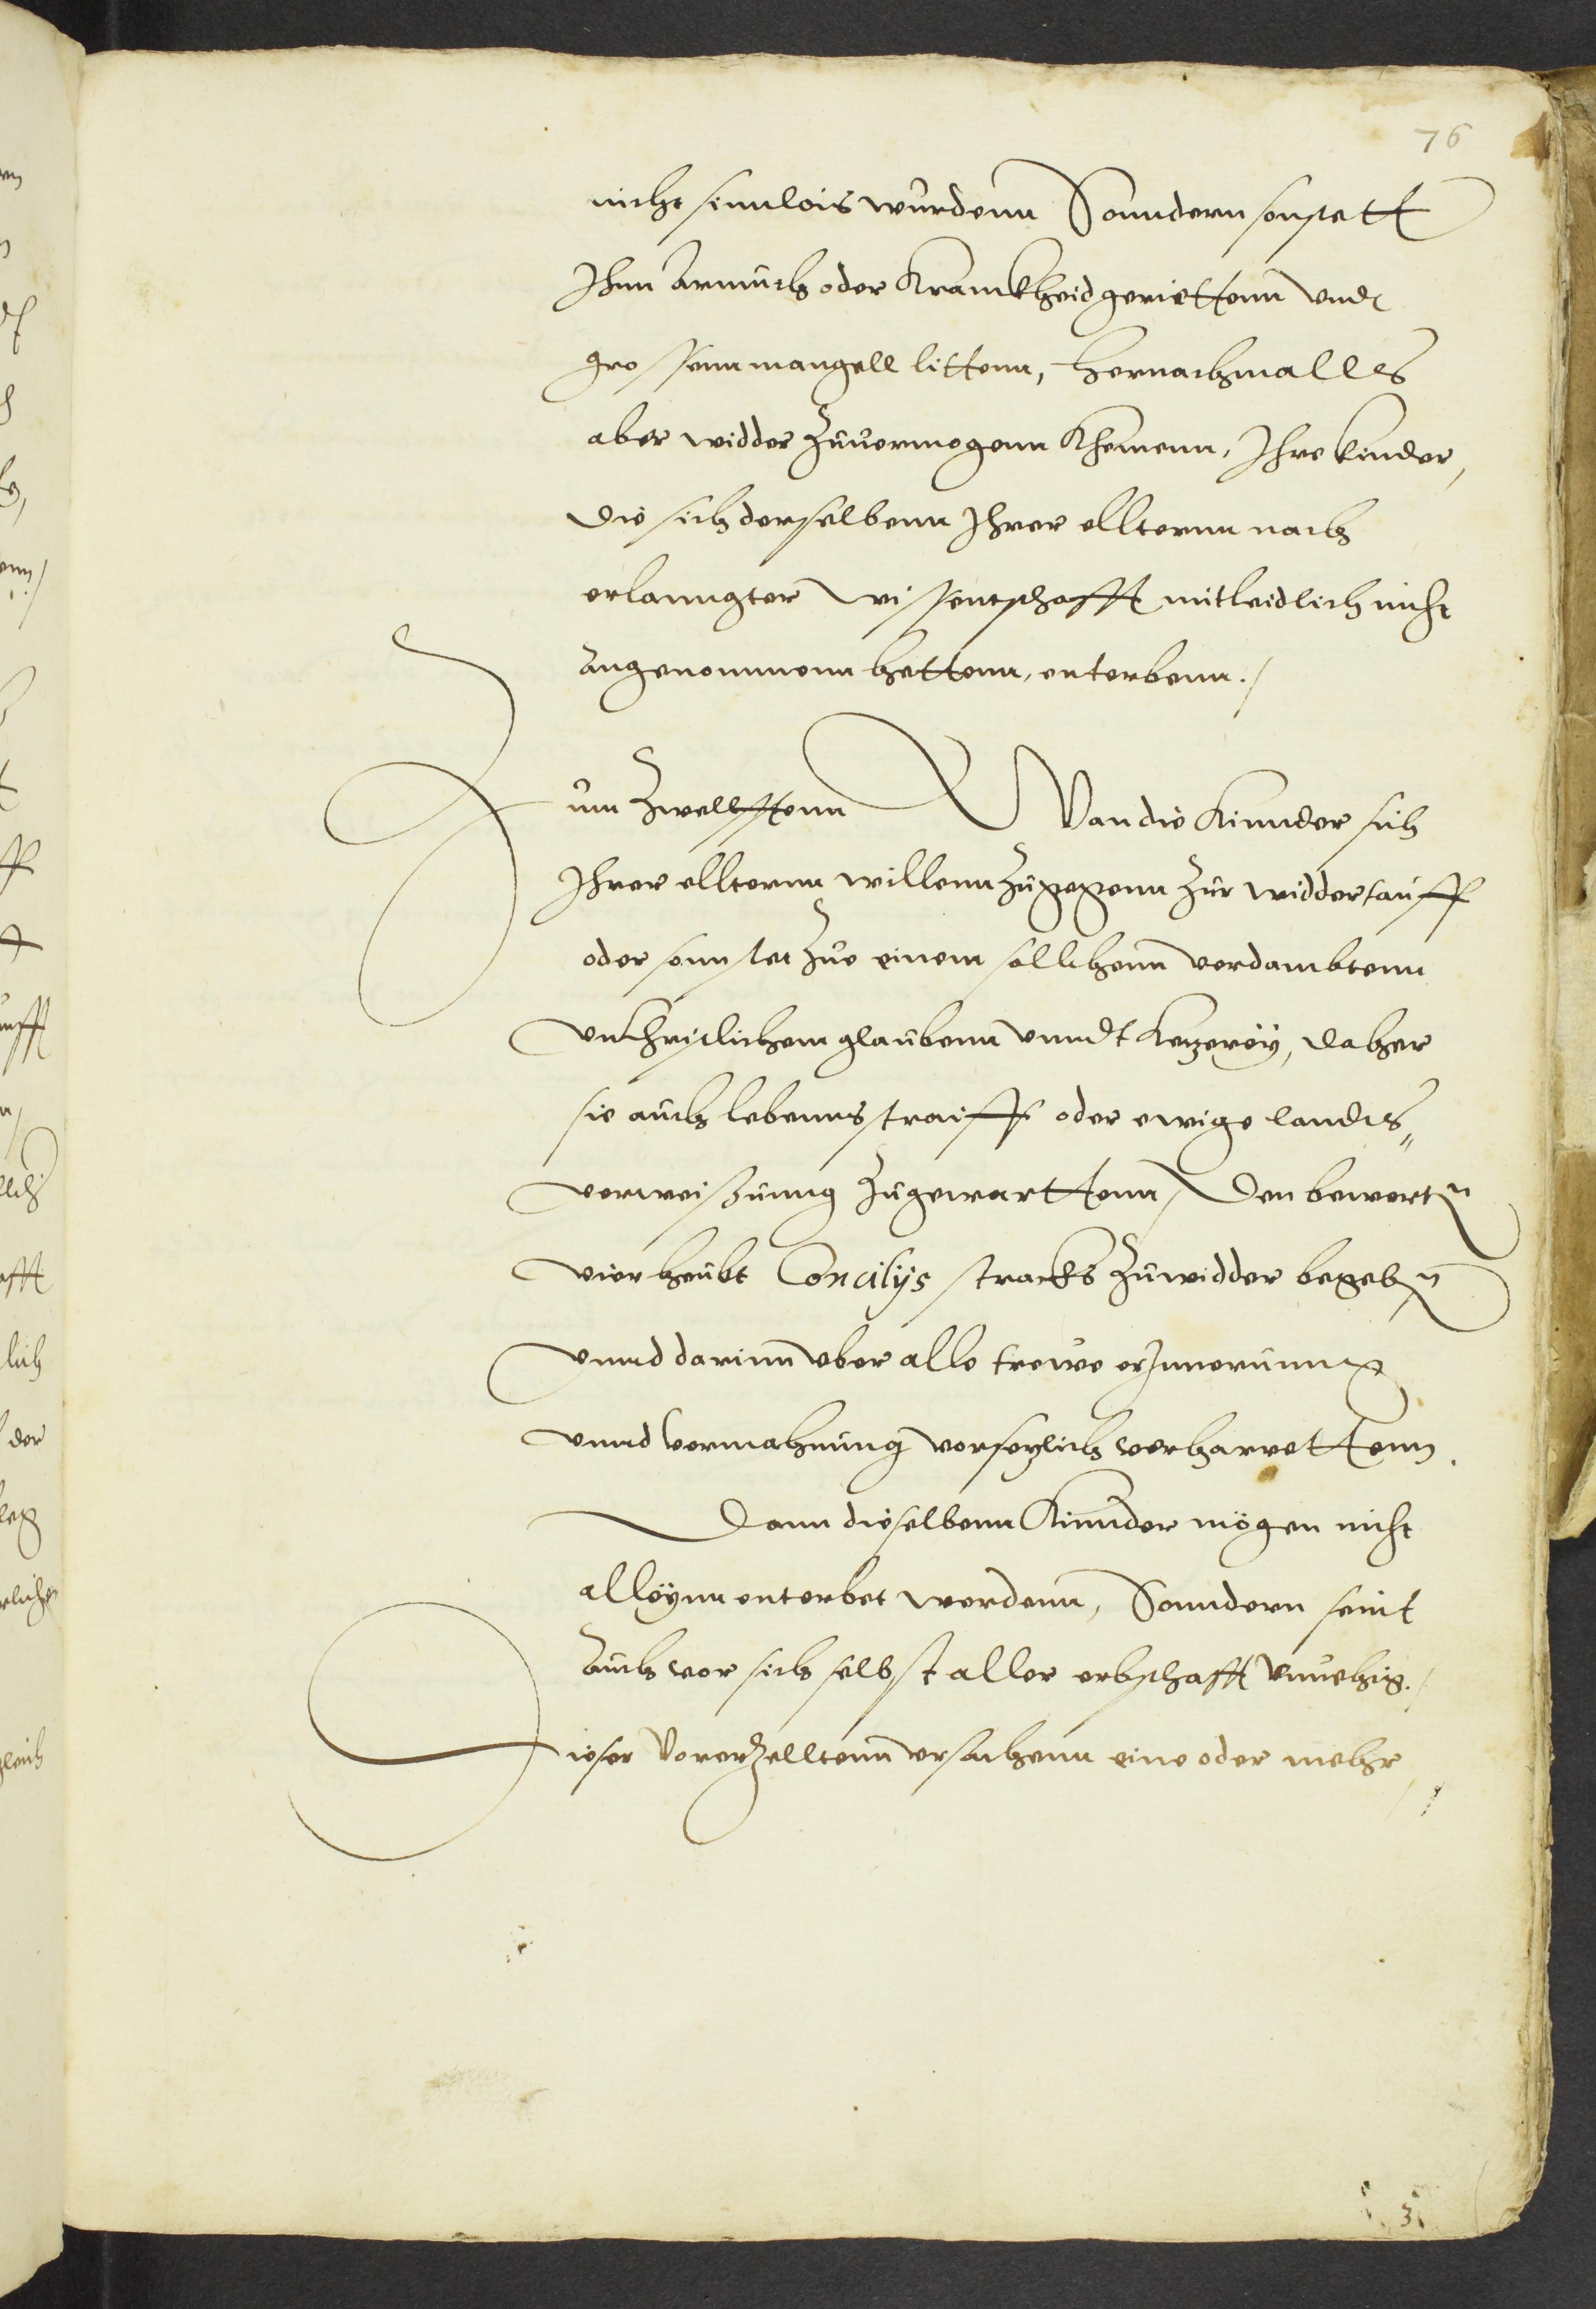 76
nicht sinnlois wurdenn Sonndern sonstett
Ihnn Armuth oder Kranckheid geriettenn vnd
grossenn mangell littenn, Hernachmalles
aber widder Zuuermogenn Khemenn, Ihre kinder,
die sich derselbenn Ihrer elltternn nach
erlanngter wissentschafft mitleidlich nicht
Angenommenn hettenn, enterbenn./
Zum Zwellfftenn Wan die Kinnder sich
Ihrer ellternn willenn Zugegenn Zur widdertauff
oder sonnstet Zue einem sollichenn verdambtenn
vnchristlichem glaubenn vnndt Ketzereÿ, daher
sie auch lebennsstraiff oder ewige landts„
verweißunng Zugewarttenn / Den bewertn
vier heubt Concilijs stracks Zuwidder begebn
vnnd darinn vber alle trewe erInnerunng
vnnd Vermahnung vorsetzlich verharrettenn.
Dann dieselbenn Kinnder mögen nicht
alleÿnn enterbet werdenn, Sonndern seint
Auch vor sich selbst aller erbschafft vnuehig./
Dieser Vorerzelltenn vrsachenn eine oder mehr